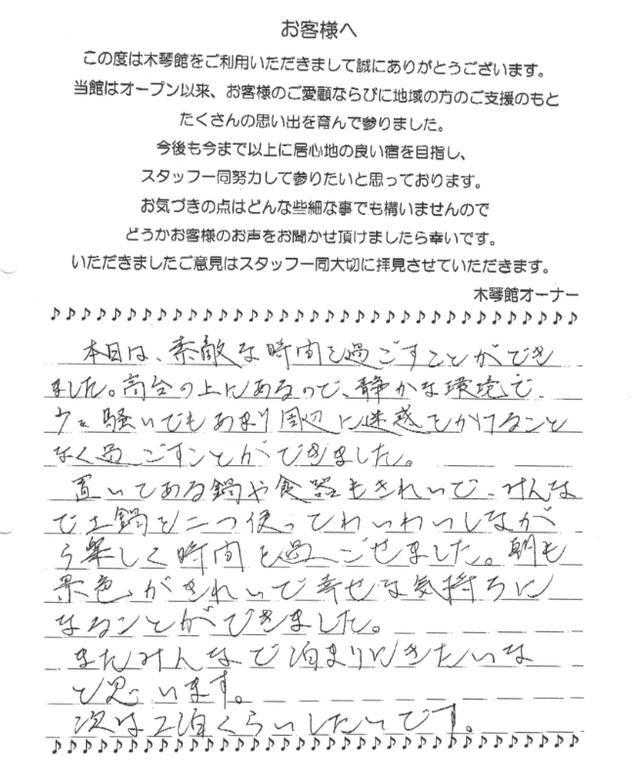 お客様へ
この度は木琴館をご利用いただきまして誠にありがとうございます。
当館はオープン以来、お客様のご愛顧ならびに地域の方のご支援のもと
たくさんの思い出を育んで参りました。
今後も今まで以上に居心地の良い宿を目指し、
スタッフ一同努力して参りたいと思っております。
お気づきの点はどんな些細な事でも構いませんので
どうかお客様のお声をお聞かせ頂けましたら幸いです。
いただきましたご意見はスタッフ一同大切に拝見させていただきます。
木琴館オーナー
本日は、素敵な時間を過ごすことができ
ました。高台の上にあるので、静かな環境で
騒いでもあまり周辺に迷惑をかけること
なく過ごすことができました。
置いてある鍋や食器もきれいで、みんな
で土鍋を二つ使ってわいわいしなが
ら楽しく時間を過ごせました。朝も
景色がきれいで幸せな気持ちに
なることができました。
またみんなで泊まりにきたいな
と思います。
次は2泊くらいしたいです。